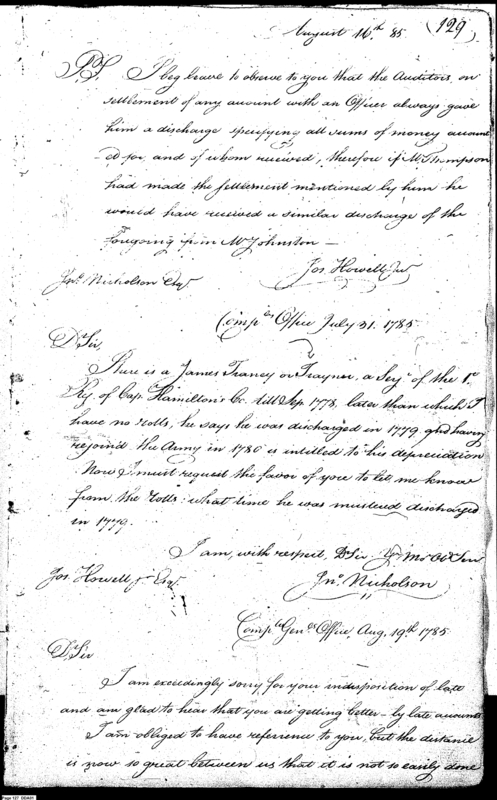 August 16th 85 (129)
PS I beg leave to observe to you that the Auditors on
settlement of any account with an Officer always gave
him a discharge specifying all sums of money account
-ed for, and of whom received, therefore if Mr Thompson
had made the settlement mentioned by him he
would have received a similar discharge of the
foregoing from Mr Johnston —
Jos Howell Jur
Jno. Nicholson Esqr
Comps Office July 31. 1785
Dr Sir,
There is a James Traney or Traynor, a Serjt of the 1st
Reg. of Cap. Hamilton's Co. till Sep 1778, later than which I
have no rolls, he says he was discharged in 1779 and having
rejoin'd the Army in 1780 is intitled to his depreciation
Now I must request the favor of you to let me know
from the rolls what time he was mustered discharged
in 1779.
I am, with respect, Dr Sir Yr Mo Ob Serv
Jos. Howell Jr Esqr.
Jno. Nicholson
Comps Genls Office Aug. 19th 1785
Dr Sir
I am exceedingly sorry for your indisposition of late
and am glad to hear that you are getting better by late accounts
I am obliged to have referrence to you, but the distance
is now so great between us that it is not so easily done
Page 127